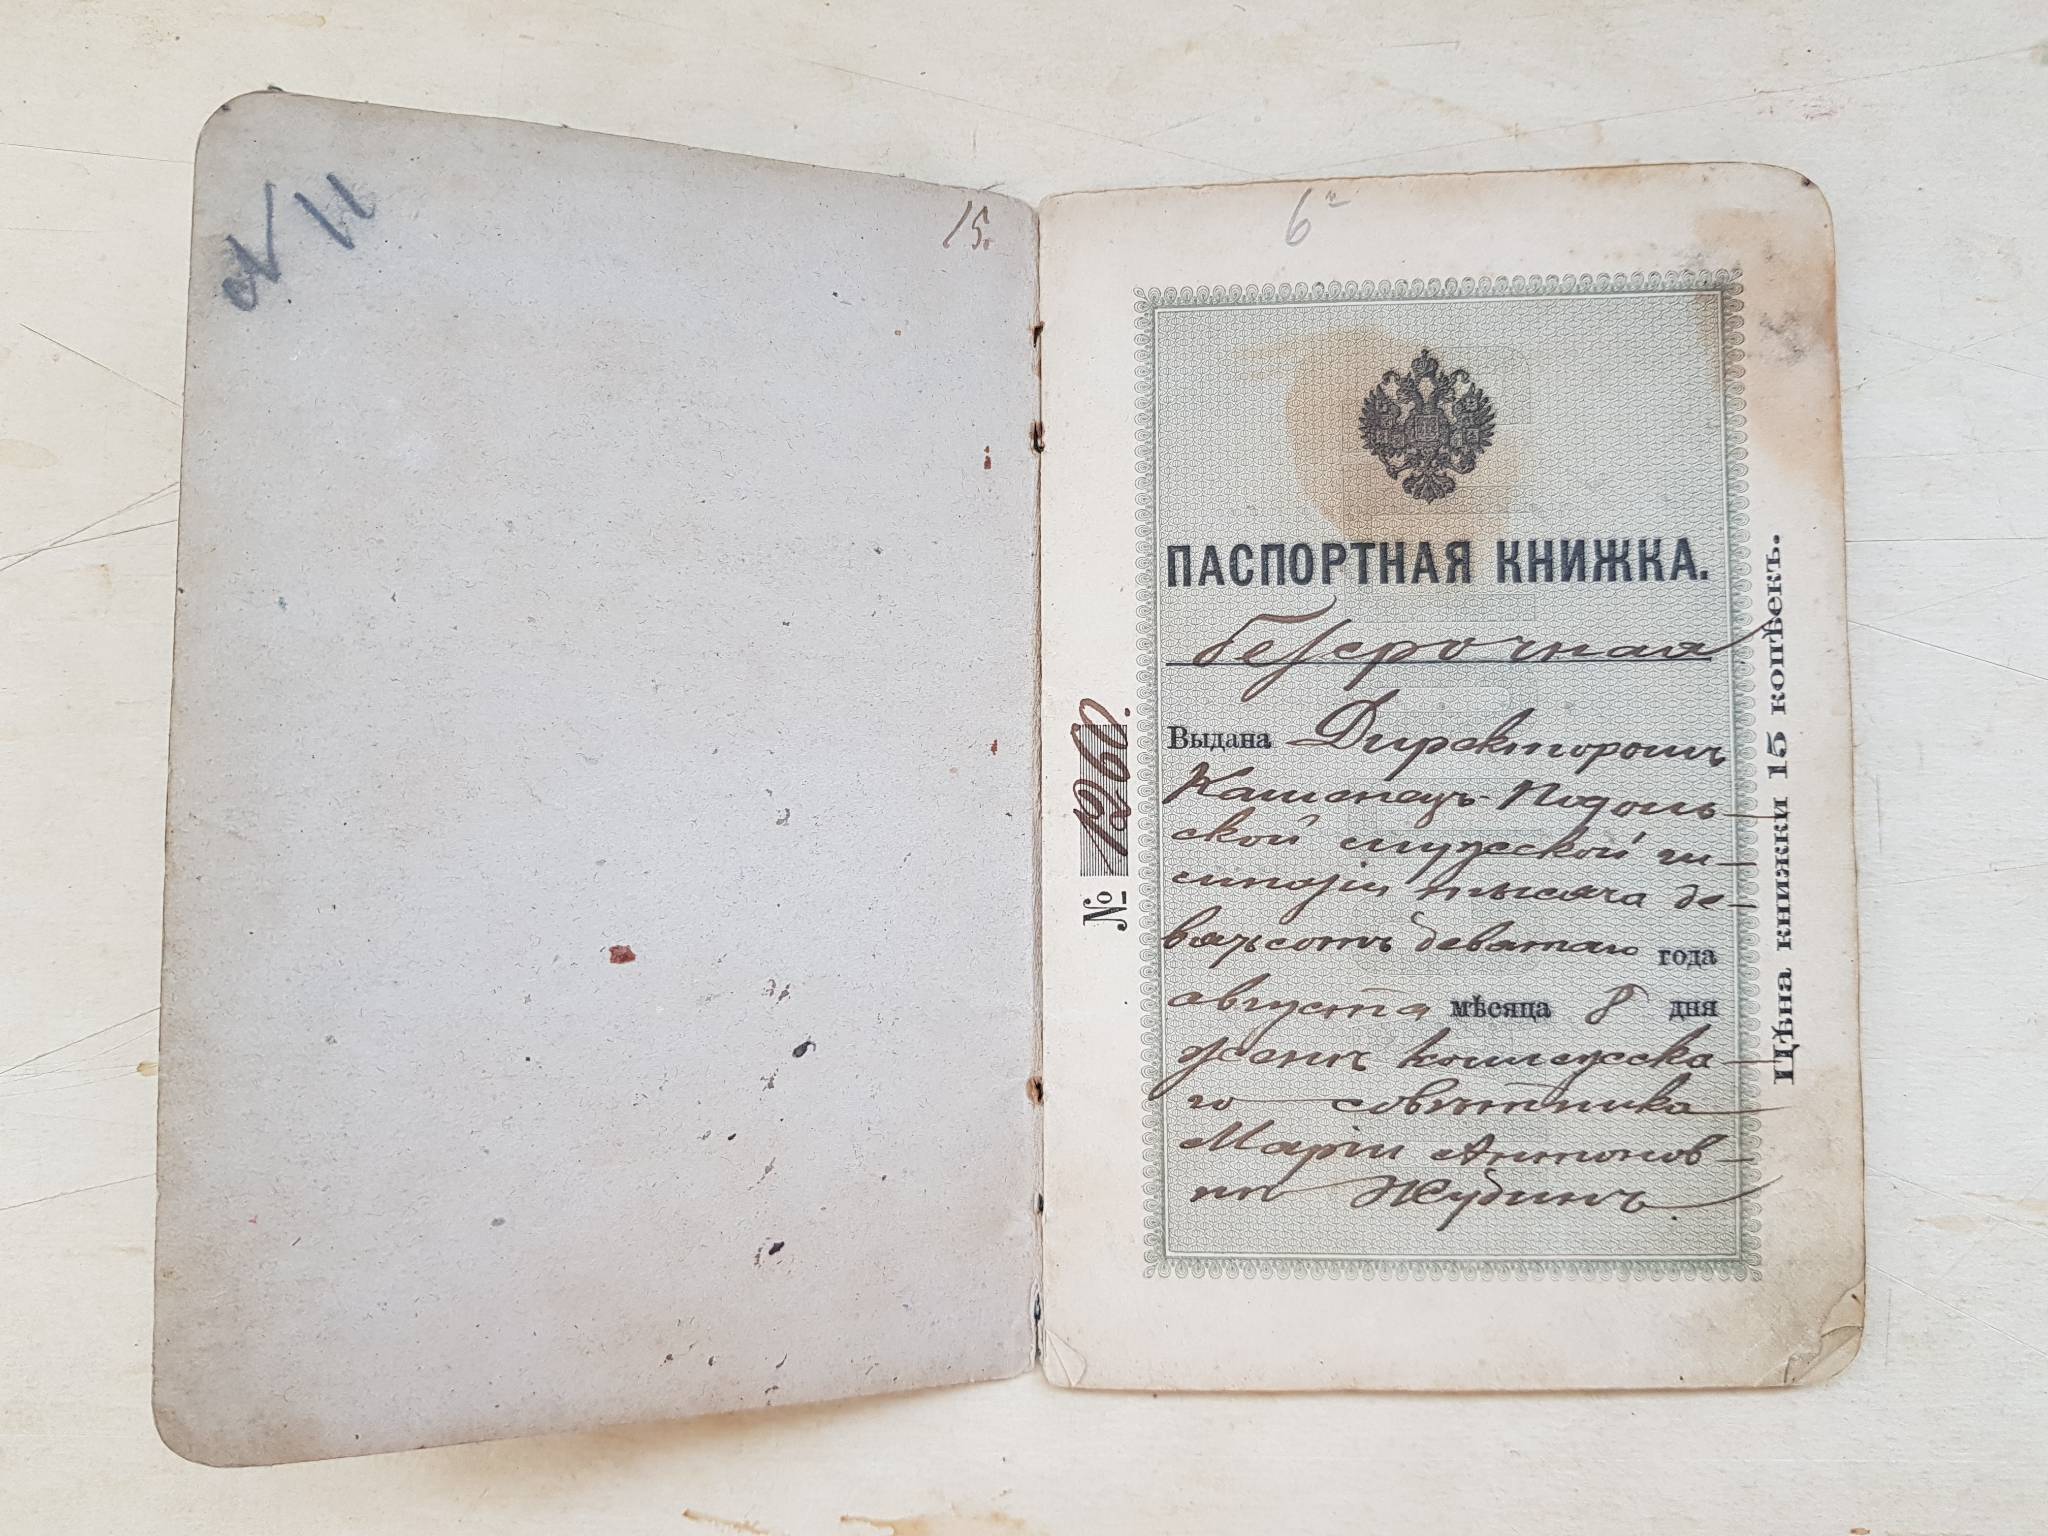 № 11
15.
6
ПАСПОРТНАЯ КНИЖКА.
безсрочная
Выдана Директоромъ
Каменецъ-Подоль-
ской мужской ги-
мназіи тысяча де-
вятьсотъ девятаго года
августа мѣсяца 8 дня
женѣ коллежска-
го совѣтника
Маріи Антонов-
нѣ
№ 1260.
Цѣна книжки 15 копѣекъ.